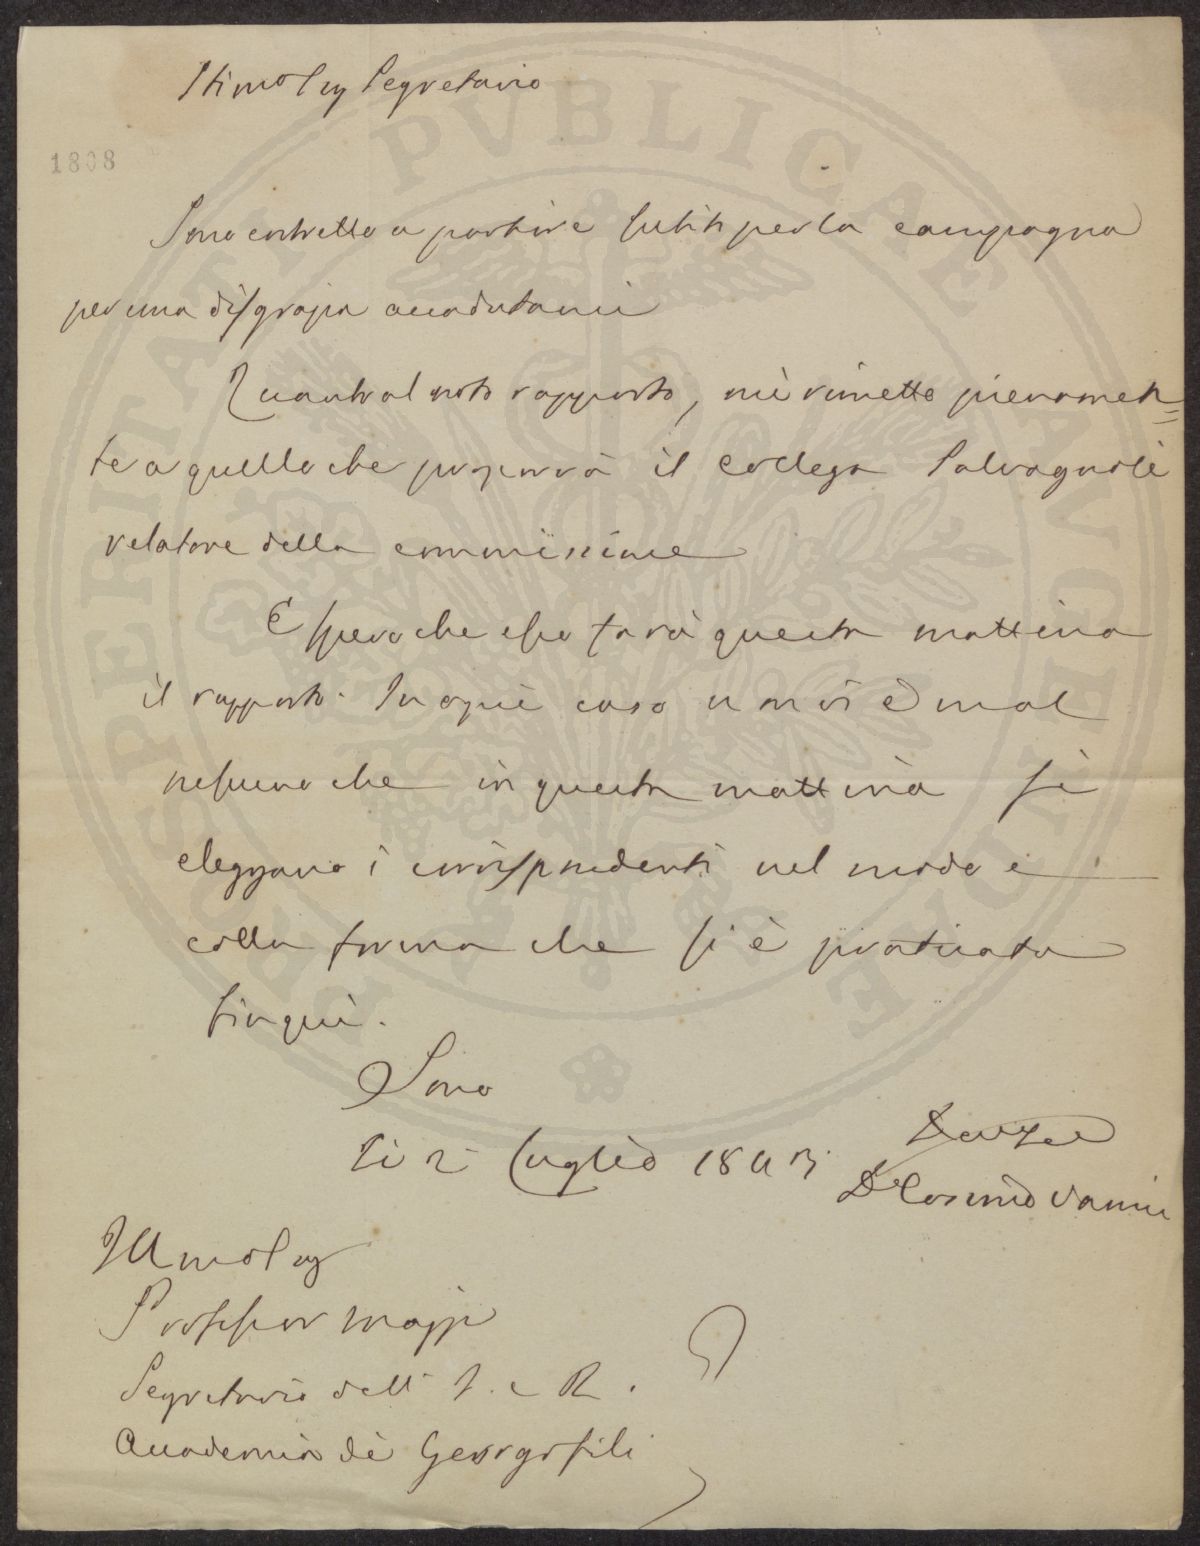 Stimo Sig Segretario
1808
Sono costretto a partire subito per la campagna
per una disgrazia accadutami
Quanto al noto rapporto, mi rimetto pienamen=
te a quello che proporrà il collega Salvagnoli
relatore della commissione
E spero che esso farà questa mattina
il rapporto. In ogni caso non vi è mal
nessuno che in questa mattina si
eleggano i corrispondenti nel modo e
colla forma che si è praticata
fin qui.
Sono
Li 2 Luglio 1843
Dr Cosimo Vanni
Illmo Sig
Professor
Segretario dell' I. e R.
Accademia dei Georgofili
PROSPERITATI PVBLICAE AVGENDAE